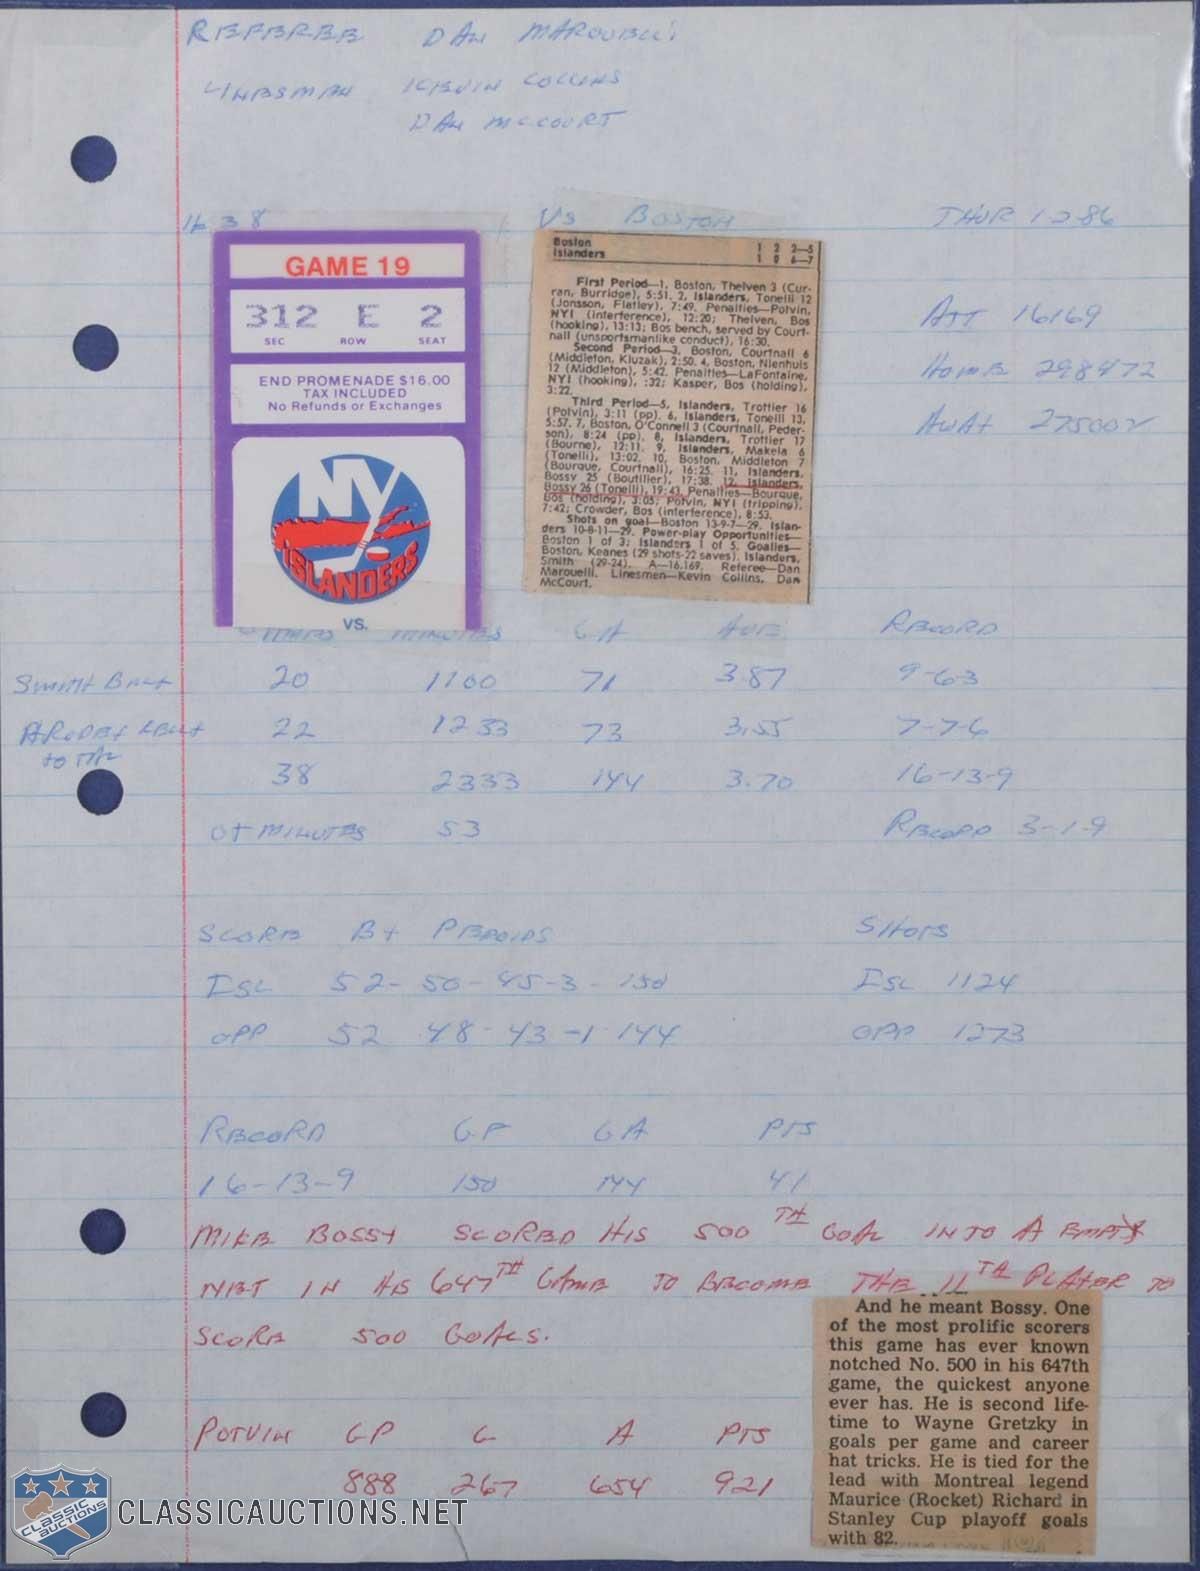 REFEREE DAN MAROUELLI
LINESMAN KEVIN COLLINS
DAN MCCOURT
1638 VS BOSTON THUR 1-2-86
GAME 19
312 E 2
SEC ROW SEAT
END PROMENADE $16.00
TAX INCLUDED
No Refunds or Exchanges
NY
ISLANDERS
VS.
Boston 1 2 2—5
Islanders 1 0 6—7
First Period—1, Boston, Thelven 3 (Cur-
ran, Burridge), 5:51. 2, Islanders, Tonelli 12
(Jonsson, Flatley), 7:49. Penalties—Potvin,
NYI (interference), 12:20; Thelven, Bos
(hooking), 13:13; Bos bench, served by Court-
nall (unsportsmanlike conduct), 16:30.
Second Period—3, Boston, Courtnall 6
(Middleton, Kluzak), 2:50. 4, Boston, Nienhuis
12 (Middleton), 5:42. Penalties—LaFontaine,
NYI (hooking), :32; Kasper, Bos (holding),
3:22.
Third Period—5, Islanders, Trottier 16
(Potvin), 3:11 (pp). 6, Islanders, Tonelli 13,
5:57. 7, Boston, O'Connell 3 (Courtnall, Peder-
son), 8:24 (pp). 8, Islanders, Trottier 17
(Bourne), 12:11. 9, Islanders, Makela 6
(Tonelli), 13:02. 10, Boston, Middleton 7
(Bourque, Courtnall), 16:25. 11, Islanders,
Bossy 25 (Boutilier), 17:38. 12, Islanders,
Bossy 26 (Tonelli), 19:43. Penalties—Bourque,
Bos (holding), 3:05; Potvin, NYI (tripping),
7:42; Crowder, Bos (interference), 8:53.
Shots on goal—Boston 13-9-7—29. Islan-
ders 10-8-11—29. Power-play Opportunities—
Boston 1 of 3; Islanders 1 of 5. Goalies—
Boston, Keanes (29 shots-22 saves). Islanders,
Smith (29-24). A—16,169. Referee—Dan
Marouelli. Linesmen—Kevin Collins, Dan
McCourt.
ATT 16169
HOME 298472
AWAY 275002
GAMES MINUTES GA AVE RECORD
SMITH BILLY 20 1100 71 3.87 9-6-3
HRUDEY KELLY 22 1233 73 3.55 7-7-6
TOTAL 38 2333 144 3.70 16-13-9
OT MINUTES 53 RECORD 3-1-9
SCORE BY PERIODS SHOTS
ISL 52-50-45-3-150 ISL 1124
OPP 52 48-43-1-144 OPP 1273
RECORD GF GA PTS
16-13-9 150 144 41
MIKE BOSSY SCORED HIS 500 TH GOAL INTO A EMPTY
NET IN HIS 647TH GAME TO BECOME THE 11TH PLAYER TO
SCORE 500 GOALS.
And he meant Bossy. One
of the most prolific scorers
this game has ever known
notched No. 500 in his 647th
game, the quickest anyone
ever has. He is second life-
time to Wayne Gretzky in
goals per game and career
hat tricks. He is tied for the
lead with Montreal legend
Maurice (Rocket) Richard in
Stanley Cup playoff goals
with 82.
POTVIN GP G A PTS
888 267 654 921
CLASSIC AUCTIONS
CLASSICAUCTIONS.NET